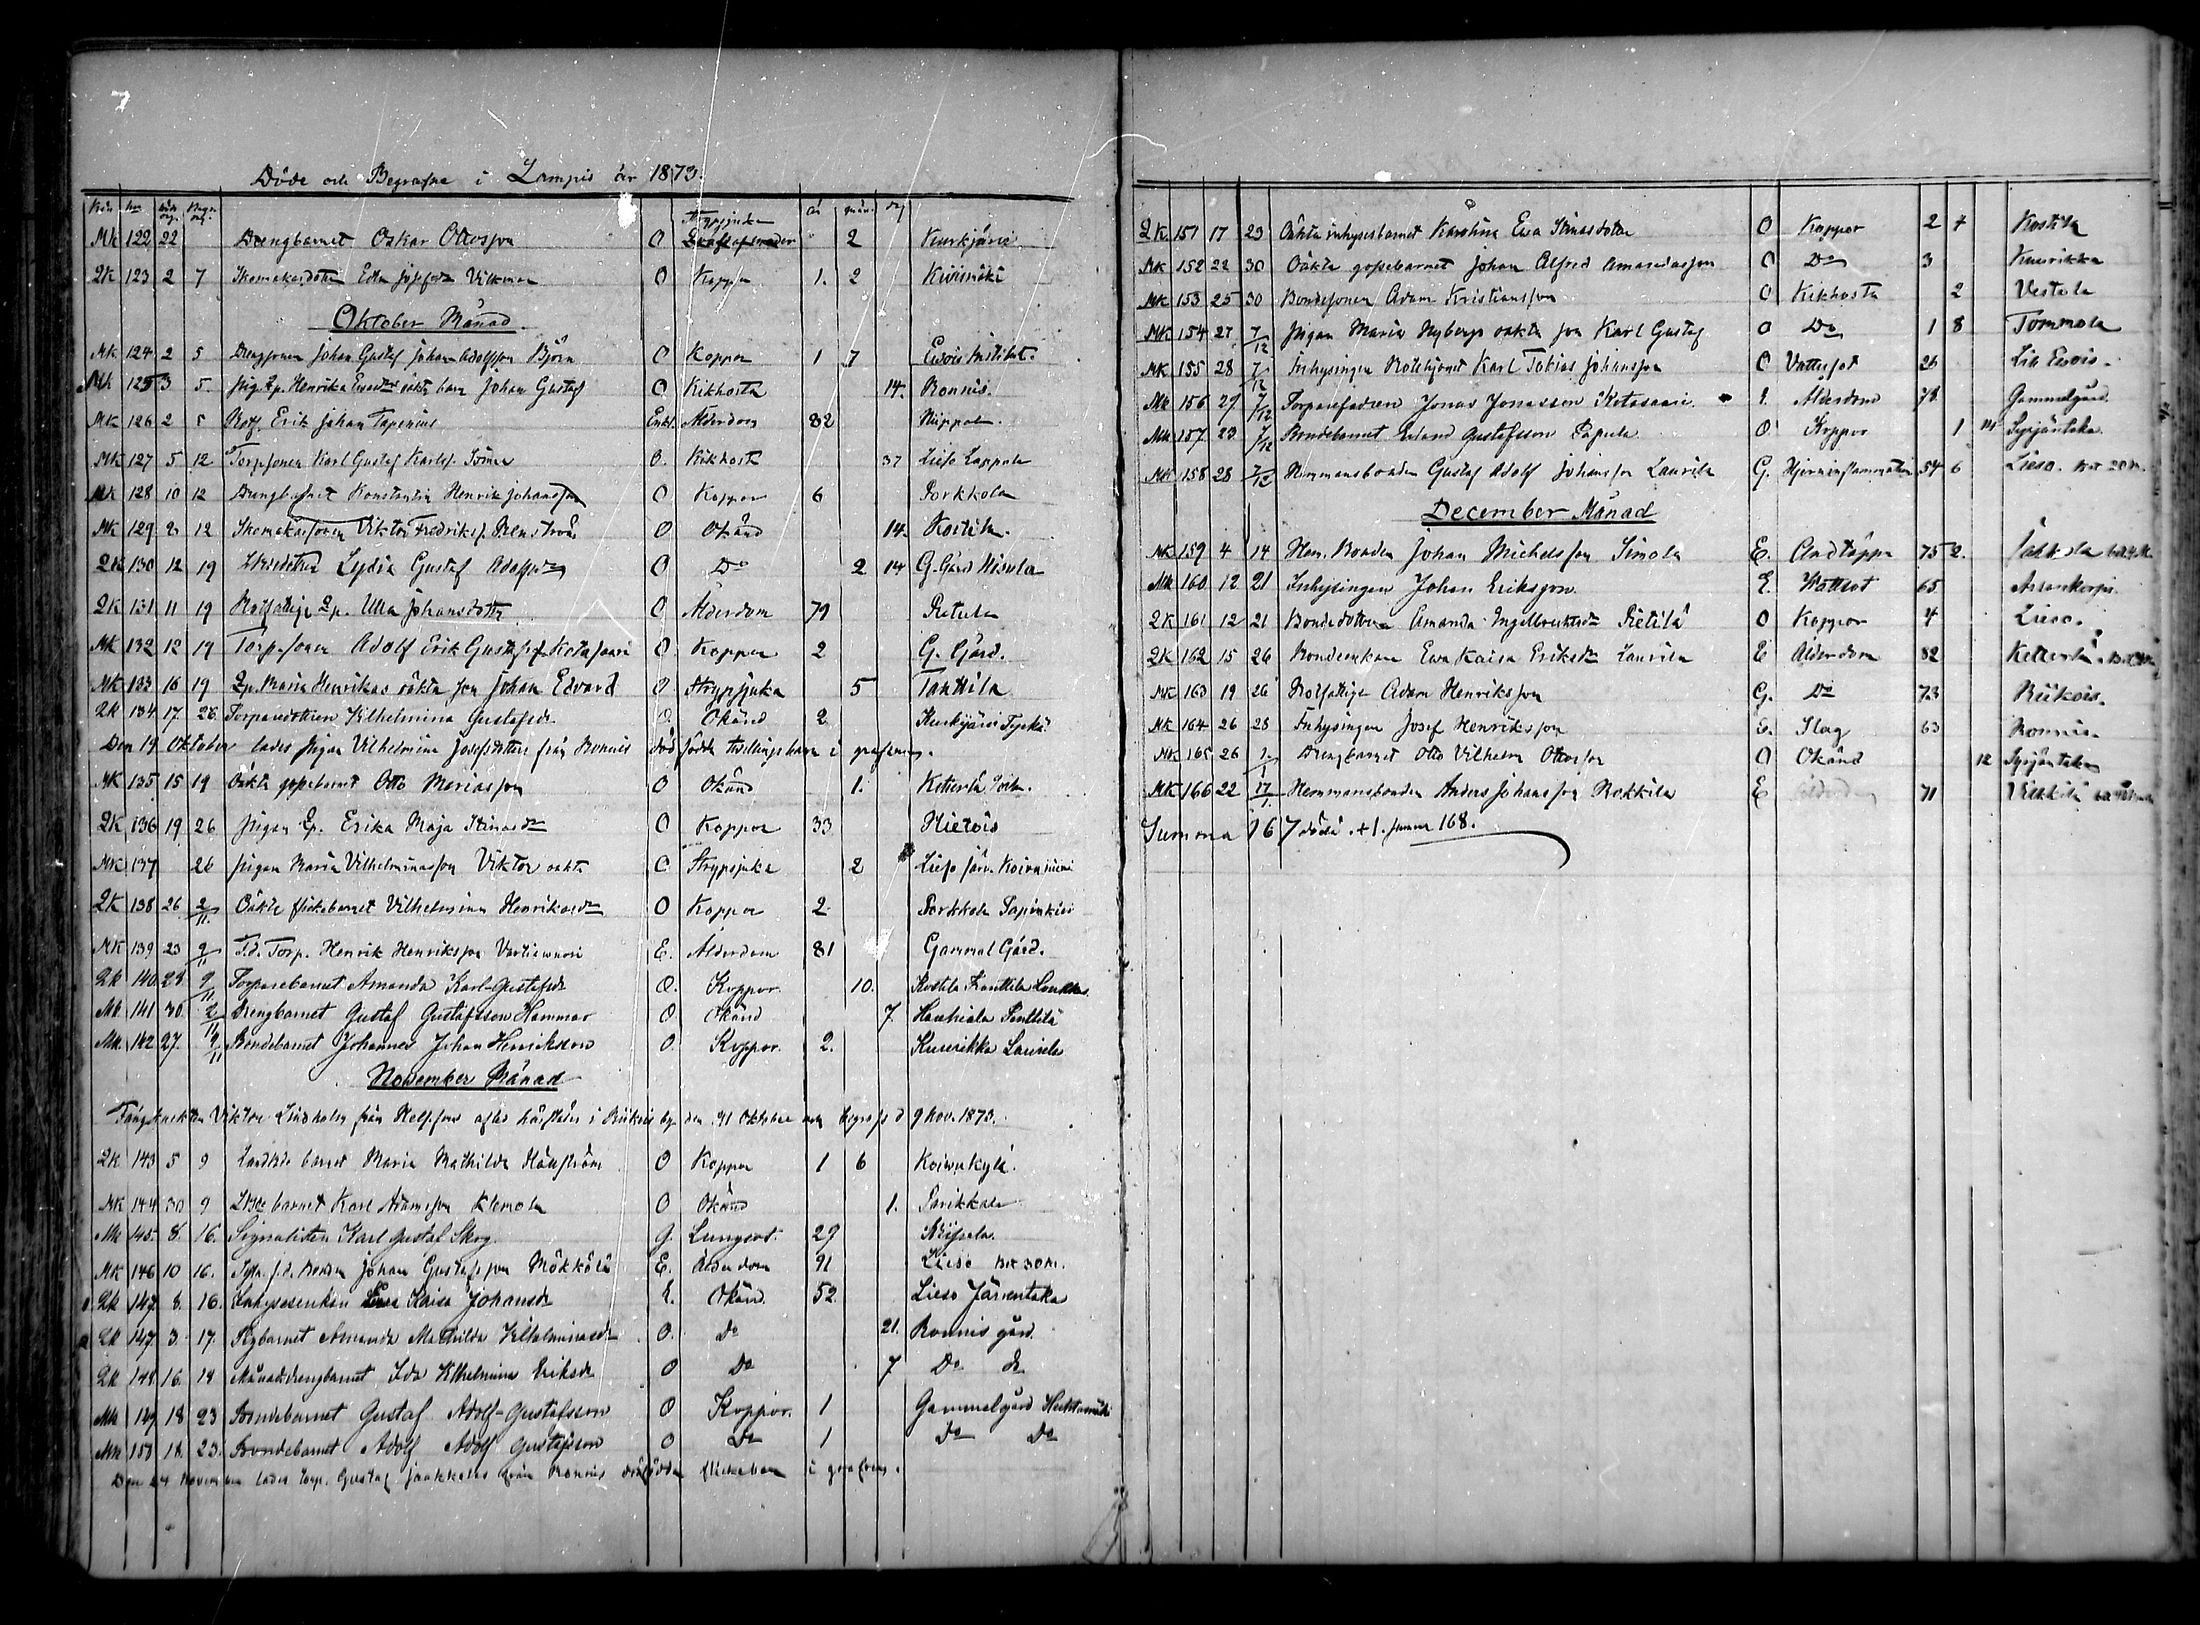 Döde och Begrafne i Lampis år 1873.
Kön år mån dag
MK 122 22 Drengbarnet Oskar Ottosson O Strypsjuka 2 Kurkjärvi
QK 123 2 7 Skomakaredotter Edla Josefsdr Vikman O Koppor 1. 2 Kivismäki
Oktober Månad
MK 124 2 5 Drengsonen Johan Gustaf Johan Adolfsson Björn O Koppor 1 7 Evois Institut.
MK 125 3 5. Pig. Qp. Henrika oäkta barn Johan Gustaf O Kikhosta 14. Ronnis.
MK 126 2 5 Rotf. Erik Johan Tapenius Enkl. Ålderdom 82
MK 127 5 12 Torpsonen Karl Gustaf Karlss. O. Kikhosta 37 Lieso Lappola
MK 128 10 12 Drengbarnet Konstantin Henrik Johansson O Koppor 6 Porkkola
MK 129 2 12 Skomakarsonen Viktor Fredrikss. O Okänd 14. Kostila.
QK 130 12 19 Lydia Gustaf Adolfsdr O Do 2 14 G. Gård Nisula
QK 131 11 19 Rotfattige Qp. Ulla Johansdotter O Ålderdom 79 Pietula
MK 132 12 19 Torpsonen Adolf Erik Gustafss. Kotasaari O. Koppor 2 G. Gård.
MK 133 16 19 Qp. Maria Henrikas oäkta son Johan Edvard O Strypsjuka 5 Tanttila
QK 134 17. 26 Torparedottren Vilhelmina Gustafsdr. O. Okänd 2 Kurkijärvi
Den 19 Oktober lades pigan Vilhelmina Josefsdotters från Ronnis dödfödda tvillingebarn i grafven.
MK 135 15 19 Oäkta gossebarnet Otto Mariasson O Okänd 1. Ketterlä
QK 136 19 26 Pigan Qp. Erika Maja Stinasdr O Koppor 33 Hietois
MK 137 26 Pigan Maria Vilhelminasson Viktor oäkta O Strypsjuka 2 Lieso Koivuniemi
QK 138 26 2/11. Oäkta flickebarnet Vilhelmina Henrikasdr O Koppor 2 Porkkola
MK 139 23 9/11 F.d. Torp. Henrik Henriksson E. Ålderdom 81 Gammal Gård.
QK 140 28 9/11 Torparebarnet Amanda Karl-Gustafsdr O. Koppor 10. Kostila Kanttila
MK 141 30. 2/11 Drengbarnet Gustaf Gustafsson Hammar O Okänd 7. Hauhiala Penttilä
MK. 142 27. 9/11 Bondebarnet Johannes Johan Henriksson O Koppor. 2. Kuurikka Laurila
November Månad
Viktor Lindholm från Helsfors afled i Riikois by den 31 Oktober och begrofs d 9 Nov. 1873.
QK 143 5 9 barnet Maria Mathilda O Koppor 1 6 Koivukylä.
MK 144 30 9 barnet Karl Adamsson Klemola O Okänd 1. Parikkala
MK 145. 8. 16. Signalisten Karl Gustaf Skog G. Lungsot. 29
MK 146 10 16. f.d. Bonden Johan Gustafsson Mökkölä E. Ålderdom 91 Lieso
QK 147 8. 16. Inhysesenkan Kaisa Johansdr E. Okänd 52. Lieso Järventaka
QK 147 3. 17. Pigbarnet Amanda Mathilda Vilhelminasdr O. Do 21. Ronnis gård.
QK 148 16. 18 Månadsdrengbarnet Ida Vilhelmina Eriksdr O Do 7 Do Do
MK 149 18 23 Bondebarnet Gustaf Adolf-Gustafsson O Koppor. 1 Gammelgård
MK 150 18. 23. Bondebarnet Adolf Adolf Gustafsson O Do 1 Do Do
Den 24 November lades torp. Gustaf Jaakkolas från Ronnis dödfödda flickebarn i grafven.
QK 151 17 23 Oäkta inhysesbarnet Karolina Eva Stinasdotter O Koppor 2 7 Kostila
MK 152 22 30 Oäkta gossebarnet Johan Alfred Amandasson O Do 3 Kuurikka
MK 153 25 30 Bondesonen Adam Kristiansson O Kikhosta 2 Vestola
MK 154 27. 7/12 Pigan Maria Nybergs oäkta son Karl Gustaf O Do 1 8 Tommola
MK 155 28 7/12 Inhysingen Karl Tobias Johansson O Vattusot 26 Evois.
MK 156 27 7/12 Torparefadren Jonas Jonasson Kotasaari. E. Ålderdom 78. Gammelgård.
MK 157 23 7/12 Bondebarnet Erland Gustafsson Papula O Koppor 1 14 Syrjäntaka
MK 158 28 7/12 Hemmansbonden Gustaf Adolf Johansson Laurila G. Hjerninflammation 54 6 Lieso.
December Månad
MK 159 4 14 Hem. Bonden Johan Michelsson Simola E. Andtäppa 75 2.
MK 160. 12 21 Inhysingen Johan Eriksson E. Vattsot 65. Arrankorpi.
QK 161 12 21 Bondedottren Amanda Ingelbrektsdr Pietilä O Koppor 4 Lieso.
QK 162 15 26 Bondeenkan Eva Kaisa Eriksdr Laurila E Ålderdom 82 Ketterlä.
MK 163 19 26 Rotfattige Adam Henriksson G. Do 73 Riikois.
MK 164 26 28 Inhysingen Josef Henriksson E. Slag 63 Ronnis.
MK 165 26 1/1 Drengbarnet Otto Vilhelm Ottosson O Okänd 12 Syrjäntaka
MK 166 22 17/1. Hemmansbonden Anders Johansson Rokkila E Ålderdom 71
Summa 167 döda. +1. summa 168.